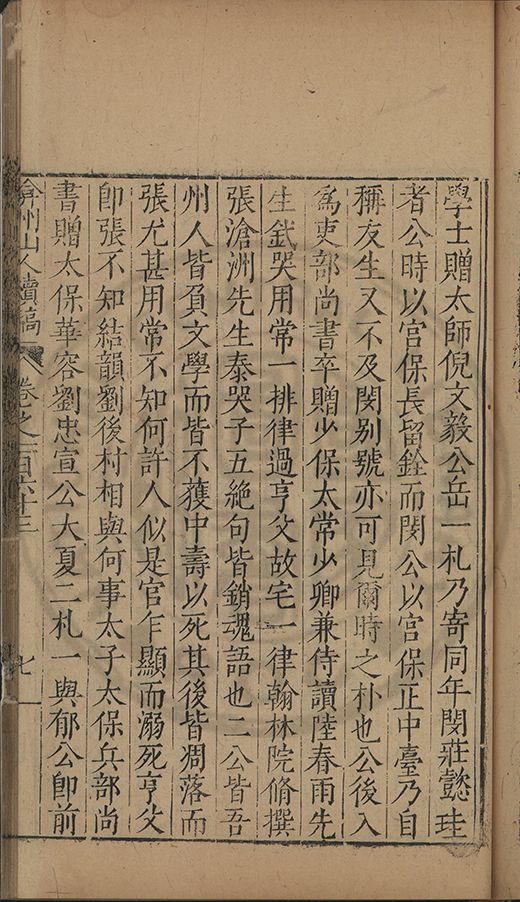 學士贈太師倪文毅公岳一札乃寄同年閔莊懿珪
者公時以官保長留銓而閔公以官保正中臺乃自
稱友生又不及閔別號亦可見爾時之朴也公後入
爲吏部尚書卒贈少保太常少卿兼侍讀陸春雨先
生釴哭用常一排律過亨父故宅一律翰林院脩撰
張滄洲先生泰哭子五絶句皆銷魂語也二公皆吾
州人皆負文學而皆不獲中壽以死其後皆凋落而
張尤甚用常不知何許人似是官乍顯而溺死亨父
卽張不知結韻劉後村相與何事太子太保兵部尚
書贈太保華容劉忠宣公大夏二札一與郁公卽前
弇州山人續稿 卷之一百六十三 七